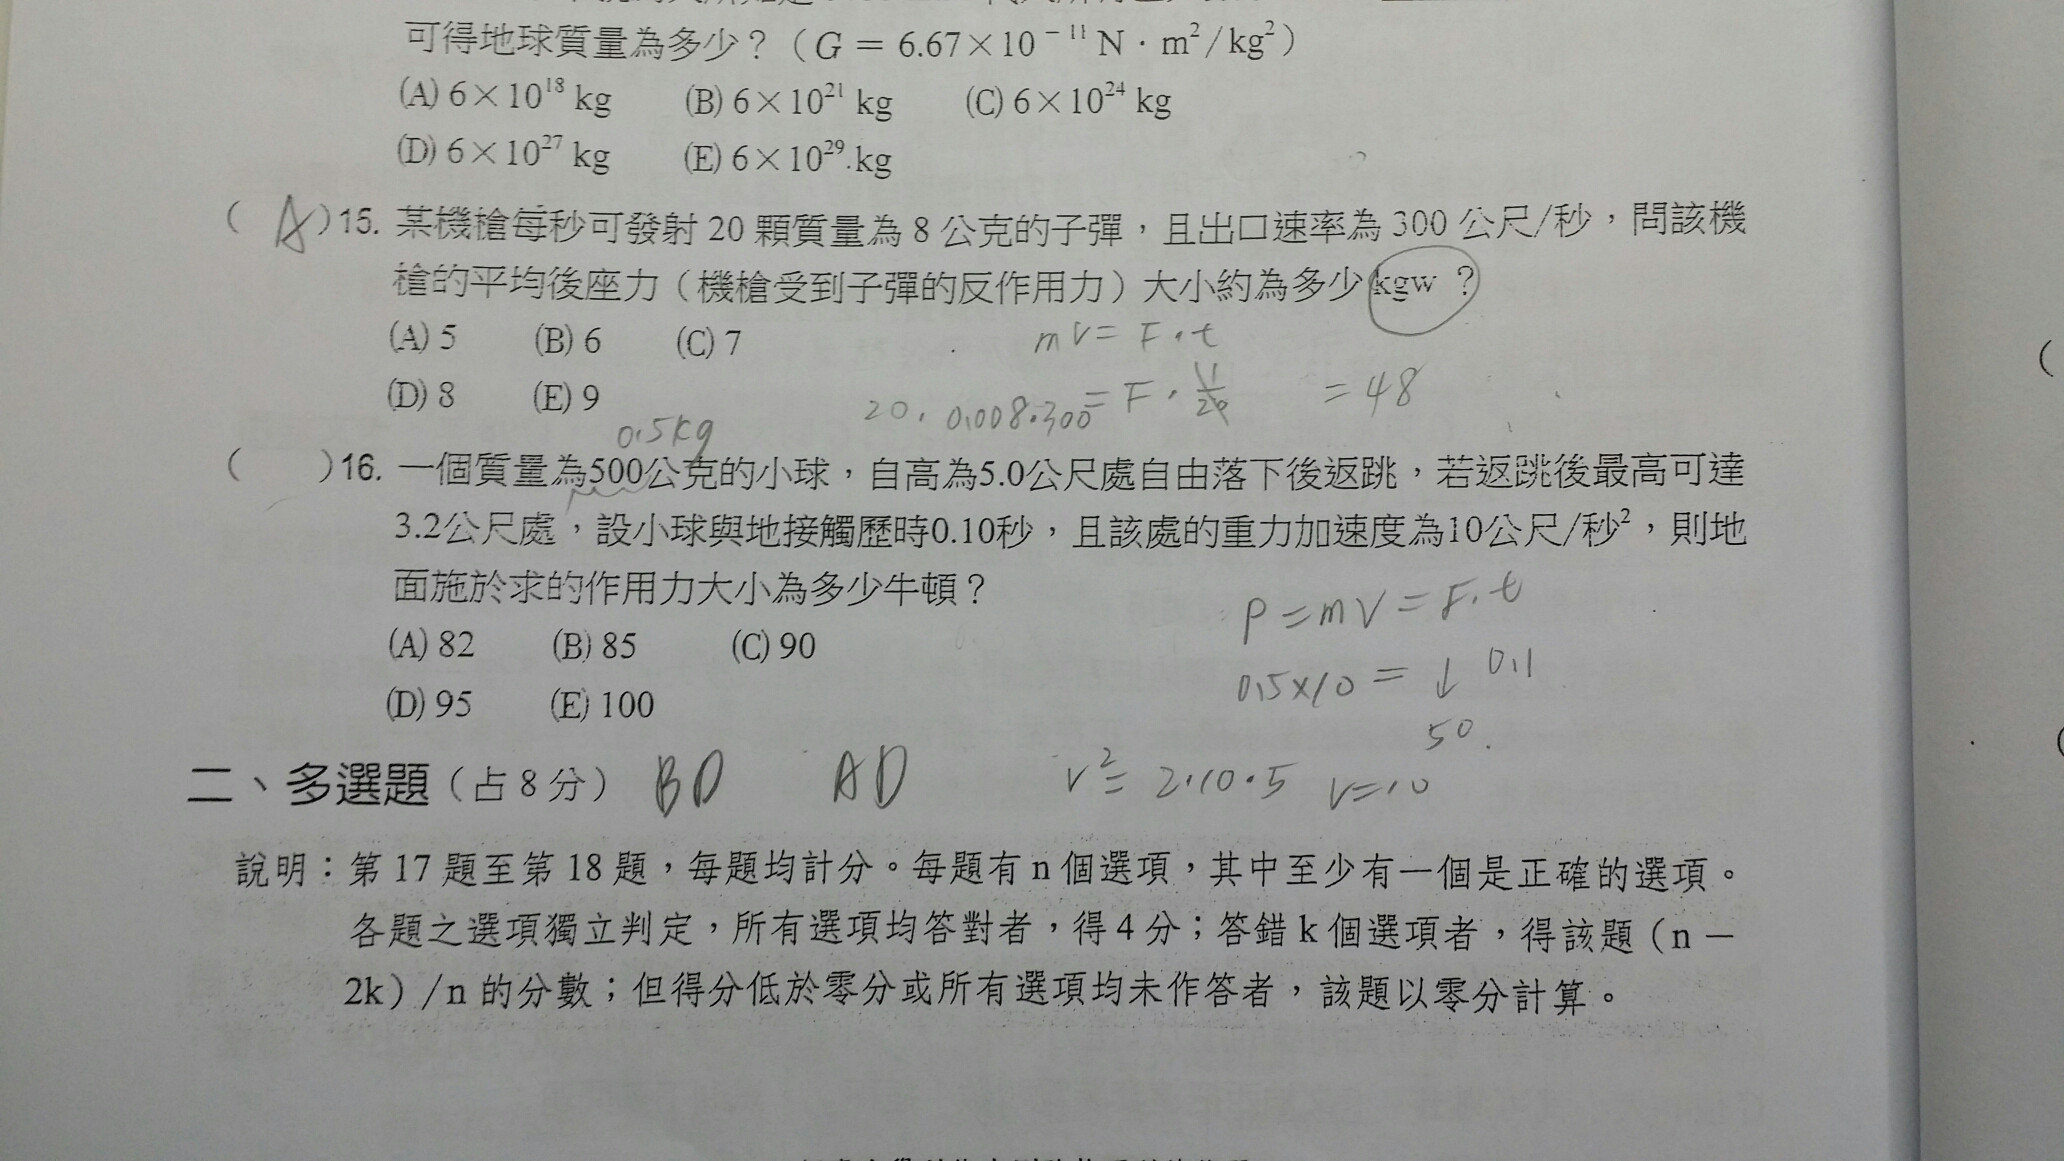 可得地球質量為多少？（G = 6.67×10⁻¹¹ N · m²/kg²）
(A) 6×10¹⁸ kg (B) 6×10²¹ kg (C) 6×10²⁴ kg
(D) 6×10²⁷ kg (E) 6×10²⁹ kg
( A )15. 某機槍每秒可發射 20 顆質量為 8 公克的子彈，且出口速率為 300 公尺/秒，問該機
槍的平均後座力（機槍受到子彈的反作用力）大小約為多少 kgw ？
(A) 5 (B) 6 (C) 7 mV = F·t
(D) 8 (E) 9 20·0.008·300 = F· = 48
0.5kg
( )16. 一個質量為500公克的小球，自高為5.0公尺處自由落下後返跳，若返跳後最高可達
3.2公尺處，設小球與地接觸歷時0.10秒，且該處的重力加速度為10公尺/秒²，則地
面施於求的作用力大小為多少牛頓？
P = mV = F·t
(A) 82 (B) 85 (C) 90
0.5×10 = ↓ 0.1
(D) 95 (E) 100
50.
二、多選題（占 8 分） BD AD V² = 2·10·5 V=10
說明：第 17 題至第 18 題，每題均計分。每題有 n 個選項，其中至少有一個是正確的選項。
各題之選項獨立判定，所有選項均答對者，得 4 分；答錯 k 個選項者，得該題（n －
2k）/n 的分數；但得分低於零分或所有選項均未作答者，該題以零分計算。